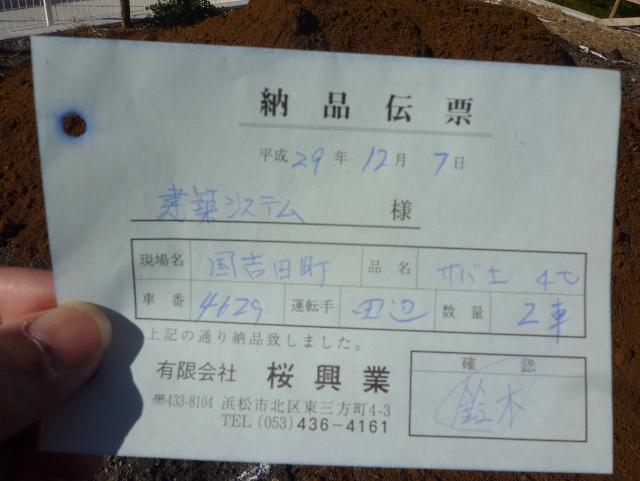 納品伝票
平成 29 年 12 月 7 日
建築システム 様
現場名 国吉田町 品名 サバ土 4t
車番 4629 運転手 田辺 数量 2車
上記の通り納品致しました。
有限会社 桜興業
〠433-8104 浜松市北区東三方町4-3
TEL (053) 436-4161
確認
鈴木